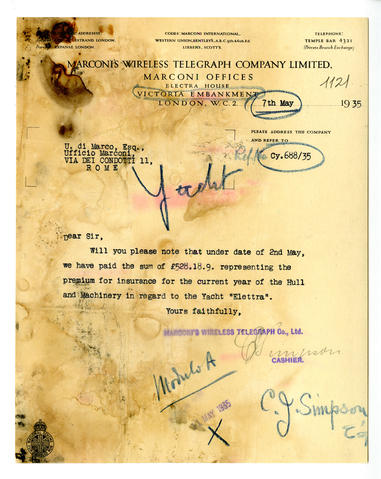 CODES: MARCONI INTERNATIONAL,
WESTERN UNION, BENTLEY'S, A.B.C. 5TH & 6TH ED.
LIEBER'S, SCOTT'S.
TELEPHONE
TEMPLE BAR 4321
(Private Branch Exchange)
MARCONI'S WIRELESS TELEGRAPH COMPANY LIMITED,
MARCONI OFFICES
ELECTRA HOUSE
VICTORIA EMBANKMENT
LONDON, W.C.2.
1121
7th May 1935
PLEASE ADDRESS THE COMPANY
AND REFER TO
Cy.688/35
U. di Marco, Esq.,
Ufficio Marconi,
VIA DEI CONDOTTI 11,
ROME
Yacht
Dear Sir,
Will you please note that under date of 2nd May,
we have paid the sum of £528.18.9. representing the
premium for insurance for the current year of the Hull
and Machinery in regard to the Yacht "Elettra".
Yours faithfully,
MARCONI'S WIRELESS TELEGRAPH Co., Ltd.
C J Simpson
CASHIER.
Modulo A
MAY 1935
X
C. J. Simpson